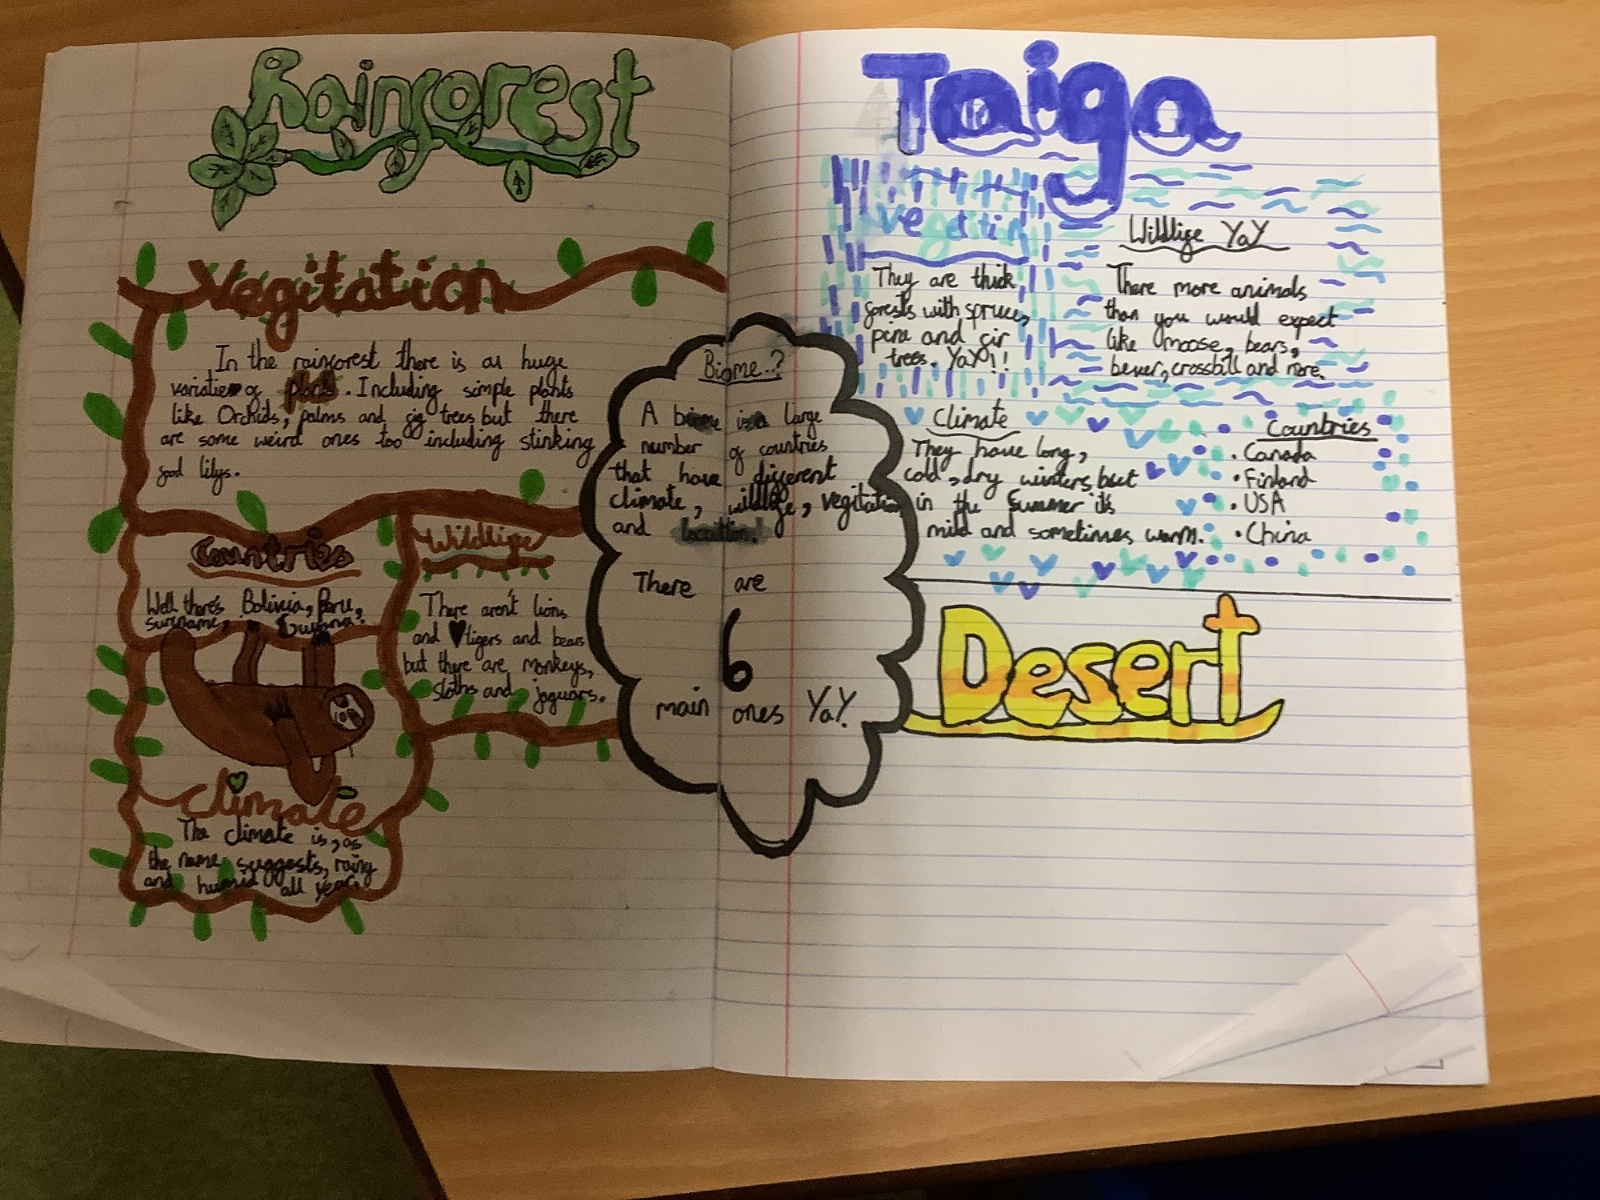 Rainforest
Vegitation
In the rainforest there is as huge
varaitie of plants. Including simple plants
like Orchids, palms and fig trees but there
are some weird ones too including stinking
god lilys.
Countries
Well there's Bolivia, Peru,
suriname, Guyana.
Wildlife
There aren't lions
and tigers and bears
but there are monkeys,
sloths and jaguars.
Climate
The climate is, as
the name suggests, rainy
and humid all year.
Biome..?
A biome is a large
number of countries
that have different
climate, wildlife, vegitation
and location.
There are
6
main ones YaY.
Taiga
Vegetation
They are thick
forests with spruce,
pine and fir
trees. YaY!!
Wildlife YaY
There more animals
than you would expect
like moose, bears,
bever, crossbill and more.
Climate
They have long,
cold, dry winters but
in the Summer it's
mild and sometimes warm.
Countries
• Canada
• Finland
• USA
• China
Desert